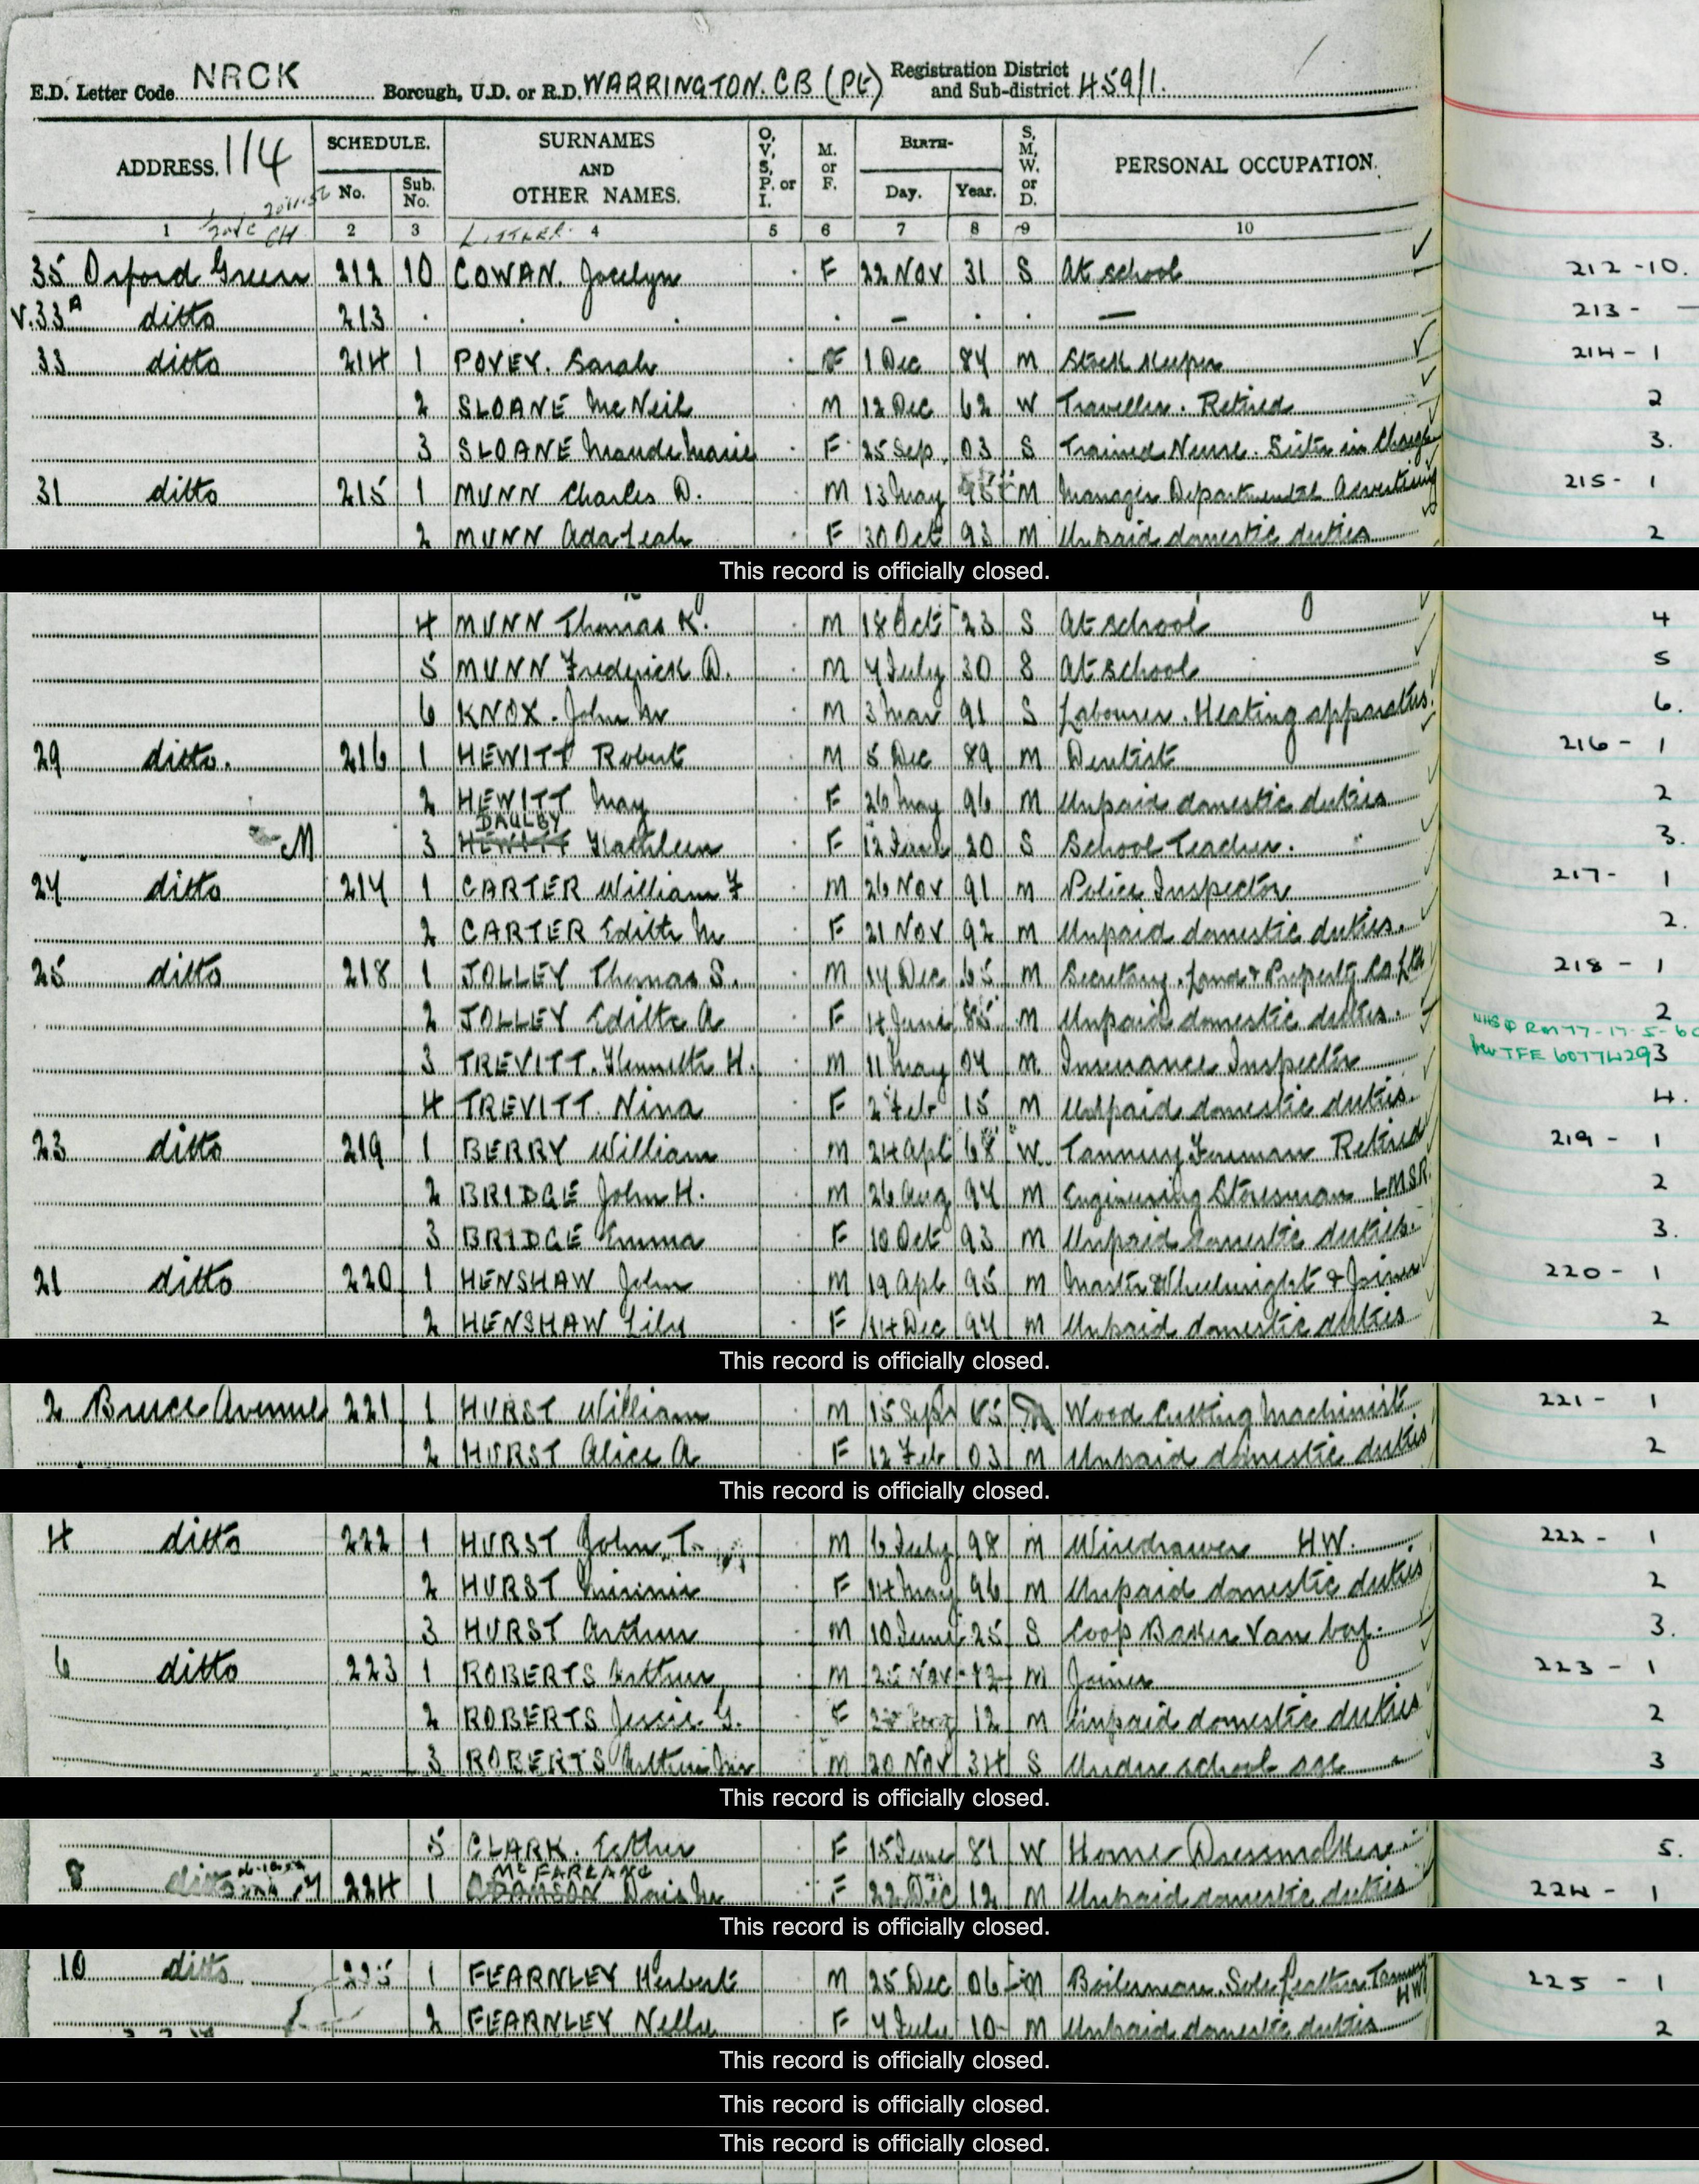 E.D. Letter Code NRCK Borough, U.D. or R.D. WARRINGTON. C B (PE) Registration District and Sub-district 459/1.
ADDRESS. 1/4 SCHEDULE. No. Sub. No. SURNAMES AND OTHER NAMES. O, V, S, P. or I. M. or F. BIRTH- Day. Year. S, M, W. or D. PERSONAL OCCUPATION.
1 2 3 4 5 6 7 8 9 10
35 Orford Green 212 10 COWAN. Jocelyn F 22 Nov 31 S At school 212-10.
V.33A ditto 213 - — 213 - —
33 ditto 214 1 POVEY. Sarah F 1 Dec 84 M Stock Keeper 214 - 1
2 SLOANE McNeil M 12 Dec 62 W Traveller. Retired 2
3 SLOANE Maude Marie F 25 Sep 03 S Trained Nurse. Sister in Charge 3.
31 ditto 215 1 MUNN Charles D. M 13 May M Manager Departmental Advertising 215- 1
2 MUNN Ada Leah F 30 Oct 93 M Unpaid domestic duties 2
This record is officially closed.
4 MUNN Thomas K. M 18 Oct 23 S At school 4
5 MUNN Frederick D. M 7 July 30 S At school 5
6 KNOX. John M M 3 Mar 91 S Labourer. Heating apparatus. 6.
29 ditto. 216 1 HEWITT Robert M 5 Dec 89 M Dentist 216 - 1
2 HEWITT May F 26 May 96 M Unpaid domestic duties 2
DAULBY
M 3 HEWITT Kathleen F 12 20 S School Teacher. 3.
27 ditto 217 1 CARTER William F M 26 Nov 91 M Police Inspector 217- 1
2 CARTER Edith M F 21 Nov 92 M Unpaid domestic duties. 2.
25 ditto 218 1 JOLLEY Thomas S. M 17 Dec 65 M Secretary. Land & Property Co. Ltd 218 - 1
2 JOLLEY Edith A F 4 June 85 M Unpaid domestic duties. 2
3 TREVITT. Kenneth H. M 11 May 07 M Insurance Inspector 3
4 TREVITT. Nina F 2 Feb 15 M Unpaid domestic duties. 4.
23 ditto 219 1 BERRY William M 24 Apl 68 W. Tannery Foreman Retired 219 - 1
2 BRIDGE John H. M 26 Aug 94 M Engineering Storesman LMSR. 2
3 BRIDGE Emma F 10 Oct 93 M Unpaid domestic duties. 3.
21 ditto 220 1 HENSHAW John M 19 Apl 95 M Master Wheelwright & Joiner 220 - 1
2 HENSHAW Lily F 14 Dec 97 M Unpaid domestic duties 2
This record is officially closed.
2 Bruce Avenue 221 1 HURST William M 15 Sept M Wood Cutting Machinist 221 - 1
2 HURST Alice A F 12 Feb 03 M Unpaid domestic duties 2
This record is officially closed.
4 ditto 222 1 HURST John T. M 6 July 98 M Wiredrawer HW. 222 - 1
2 HURST Minnie F 14 May 96 M Unpaid domestic duties 2
3 HURST Arthur M 10 June 25 S Coop Baker Van boy. 3.
6 ditto 223 1 ROBERTS Arthur M 25 Nov M Joiner 223 - 1
2 ROBERTS Jessie G. F 12 M Unpaid domestic duties 2
3 ROBERTS Arthur M 20 Nov 34 S Under school age 3
This record is officially closed.
5 CLARK. Esther F 15 June 81 W Home Dressmaker 5.
McFARLANE
8 ditto 224 1 ADAMSON Doris M F 22 Dec 12 M Unpaid domestic duties 224 - 1
This record is officially closed.
10 ditto 225 1 FEARNLEY Herbert M 25 Dec 06 M Boilerman. Sole Leather Tannery HW 225 - 1
2 FEARNLEY Nelly F 7 July 10 M Unpaid domestic duties 2
This record is officially closed.
This record is officially closed.
This record is officially closed.